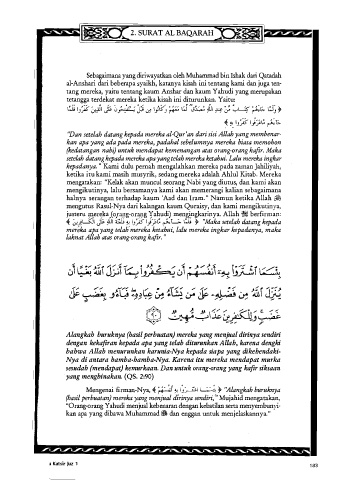 2. SURAT AL BAQARAH
Sebagaimana yang diriwayatkan oleh Muhammad bin Ishak dari Qatadah
al-Anshari dari beberapa syaikh, katanya kisah ini tentang kami dan juga ten-
tang mereka, yaitu tentang kaum Anshar dan kaum Yahudi yang merupakan
tetangga terdekat mereka ketika kisah ini diturunkan. Yaitu:
﴿ وَلَمَّا جَاءَهُمْ كِتَابٌ مِّنْ عِندِ اللَّهِ مُصَدِّقٌ لِّمَا مَعَهُمْ وَكَانُوا مِن قَبْلُ يَسْتَفْتِحُونَ عَلَى الَّذِينَ كَفَرُوا فَلَمَّا
جَاءَهُم مَّا عَرَفُوا كَفَرُوا بِهِ ﴾
"Dan setelah datang kepada mereka al-Qur'an dari sisi Allah yang membenar-
kan apa yang ada pada mereka, padahal sebelumnya mereka biasa memohon
(kedatangan nabi) untuk mendapat kemenangan atas orang-orang kafir. Maka
setelah datang kepada mereka apa yang telah mereka ketahui. Lalu mereka ingkar
kepadanya." Kami dulu pernah mengalahkan mereka pada zaman Jahiliyah,
ketika itu kami masih musyrik, sedang mereka adalah Ahlul Kitab. Mereka
mengatakan: "Kelak akan muncul seorang Nabi yang diutus, dan kami akan
mengikutinya, lalu bersamanya kami akan memerangi kalian sebagaimana
halnya serangan terhadap kaum 'Aad dan Iram." Namun ketika Allah ﷻ
mengutus Rasul-Nya dari kalangan kaum Quraisy, dan kami mengikutinya,
justeru mereka (orang-orang Yahudi) mengingkarinya. Allah ﷻ berfirman:
﴿ فَلَمَّا جَاءَهُم مَّا عَرَفُوا كَفَرُوا بِهِ فَلَعْنَةُ اللَّهِ عَلَى الْكَافِرِينَ ﴾ "Maka setelah datang kepada
mereka apa yang telah mereka ketahui, lalu mereka ingkar kepadanya, maka
laknat Allah atas orang-orang kafir."
بِئْسَمَا اشْتَرَوْا بِهِ أَنفُسَهُمْ أَن يَكْفُرُوا بِمَا أَنزَلَ اللَّهُ بَغْيًا أَن
يُنَزِّلَ اللَّهُ مِن فَضْلِهِ عَلَى مَن يَشَاءُ مِنْ عِبَادِهِ فَبَاءُو بِغَضَبٍ عَلَى
غَضَبٍ وَلِلْكَافِرِينَ عَذَابٌ مُّهِينٌ
Alangkah buruknya (hasil perbuatan) mereka yang menjual dirinya sendiri
dengan kekafiran kepada apa yang telah diturunkan Allah, karena dengki
bahwa Allah menurunkan karunia-Nya kepada siapa yang dikehendaki-
Nya di antara hamba-hamba-Nya. Karena itu mereka mendapat murka
sesudah (mendapat) kemurkaan. Dan untuk orang-orang yang kafir siksaan
yang menghinakan. (QS. 2:90)
Mengenai firman-Nya, ﴿ بِئْسَمَا اشْتَرَوْا بِهِ أَنفُسَهُمْ ﴾ "Alangkah buruknya
(hasil perbuatan) mereka yang menjual dirinya sendiri," Mujahid mengatakan,
"Orang-orang Yahudi menjual kebenaran dengan kebatilan serta menyembunyi-
kan apa yang dibawa Muhammad ﷺ dan enggan untuk menjelaskannya."
Katsir Juz 1
183